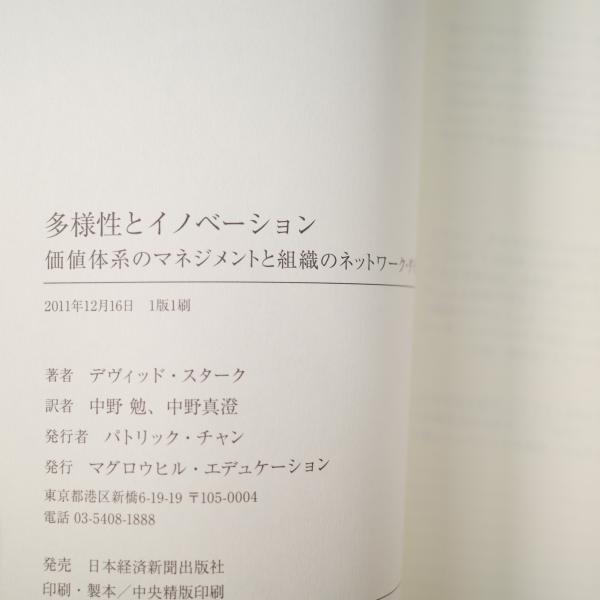 多様性とイノベーション
価値体系のマネジメントと組織のネットワーク・
2011年12月16日　1版1刷
著者　デヴィッド・スターク
訳者　中野 勉、中野真澄
発行者　パトリック・チャン
発行　マグロウヒル・エデュケーション
東京都港区新橋6-19-19 〒105-0004
電話 03-5408-1888
発売　日本経済新聞出版社
印刷・製本／中央精版印刷